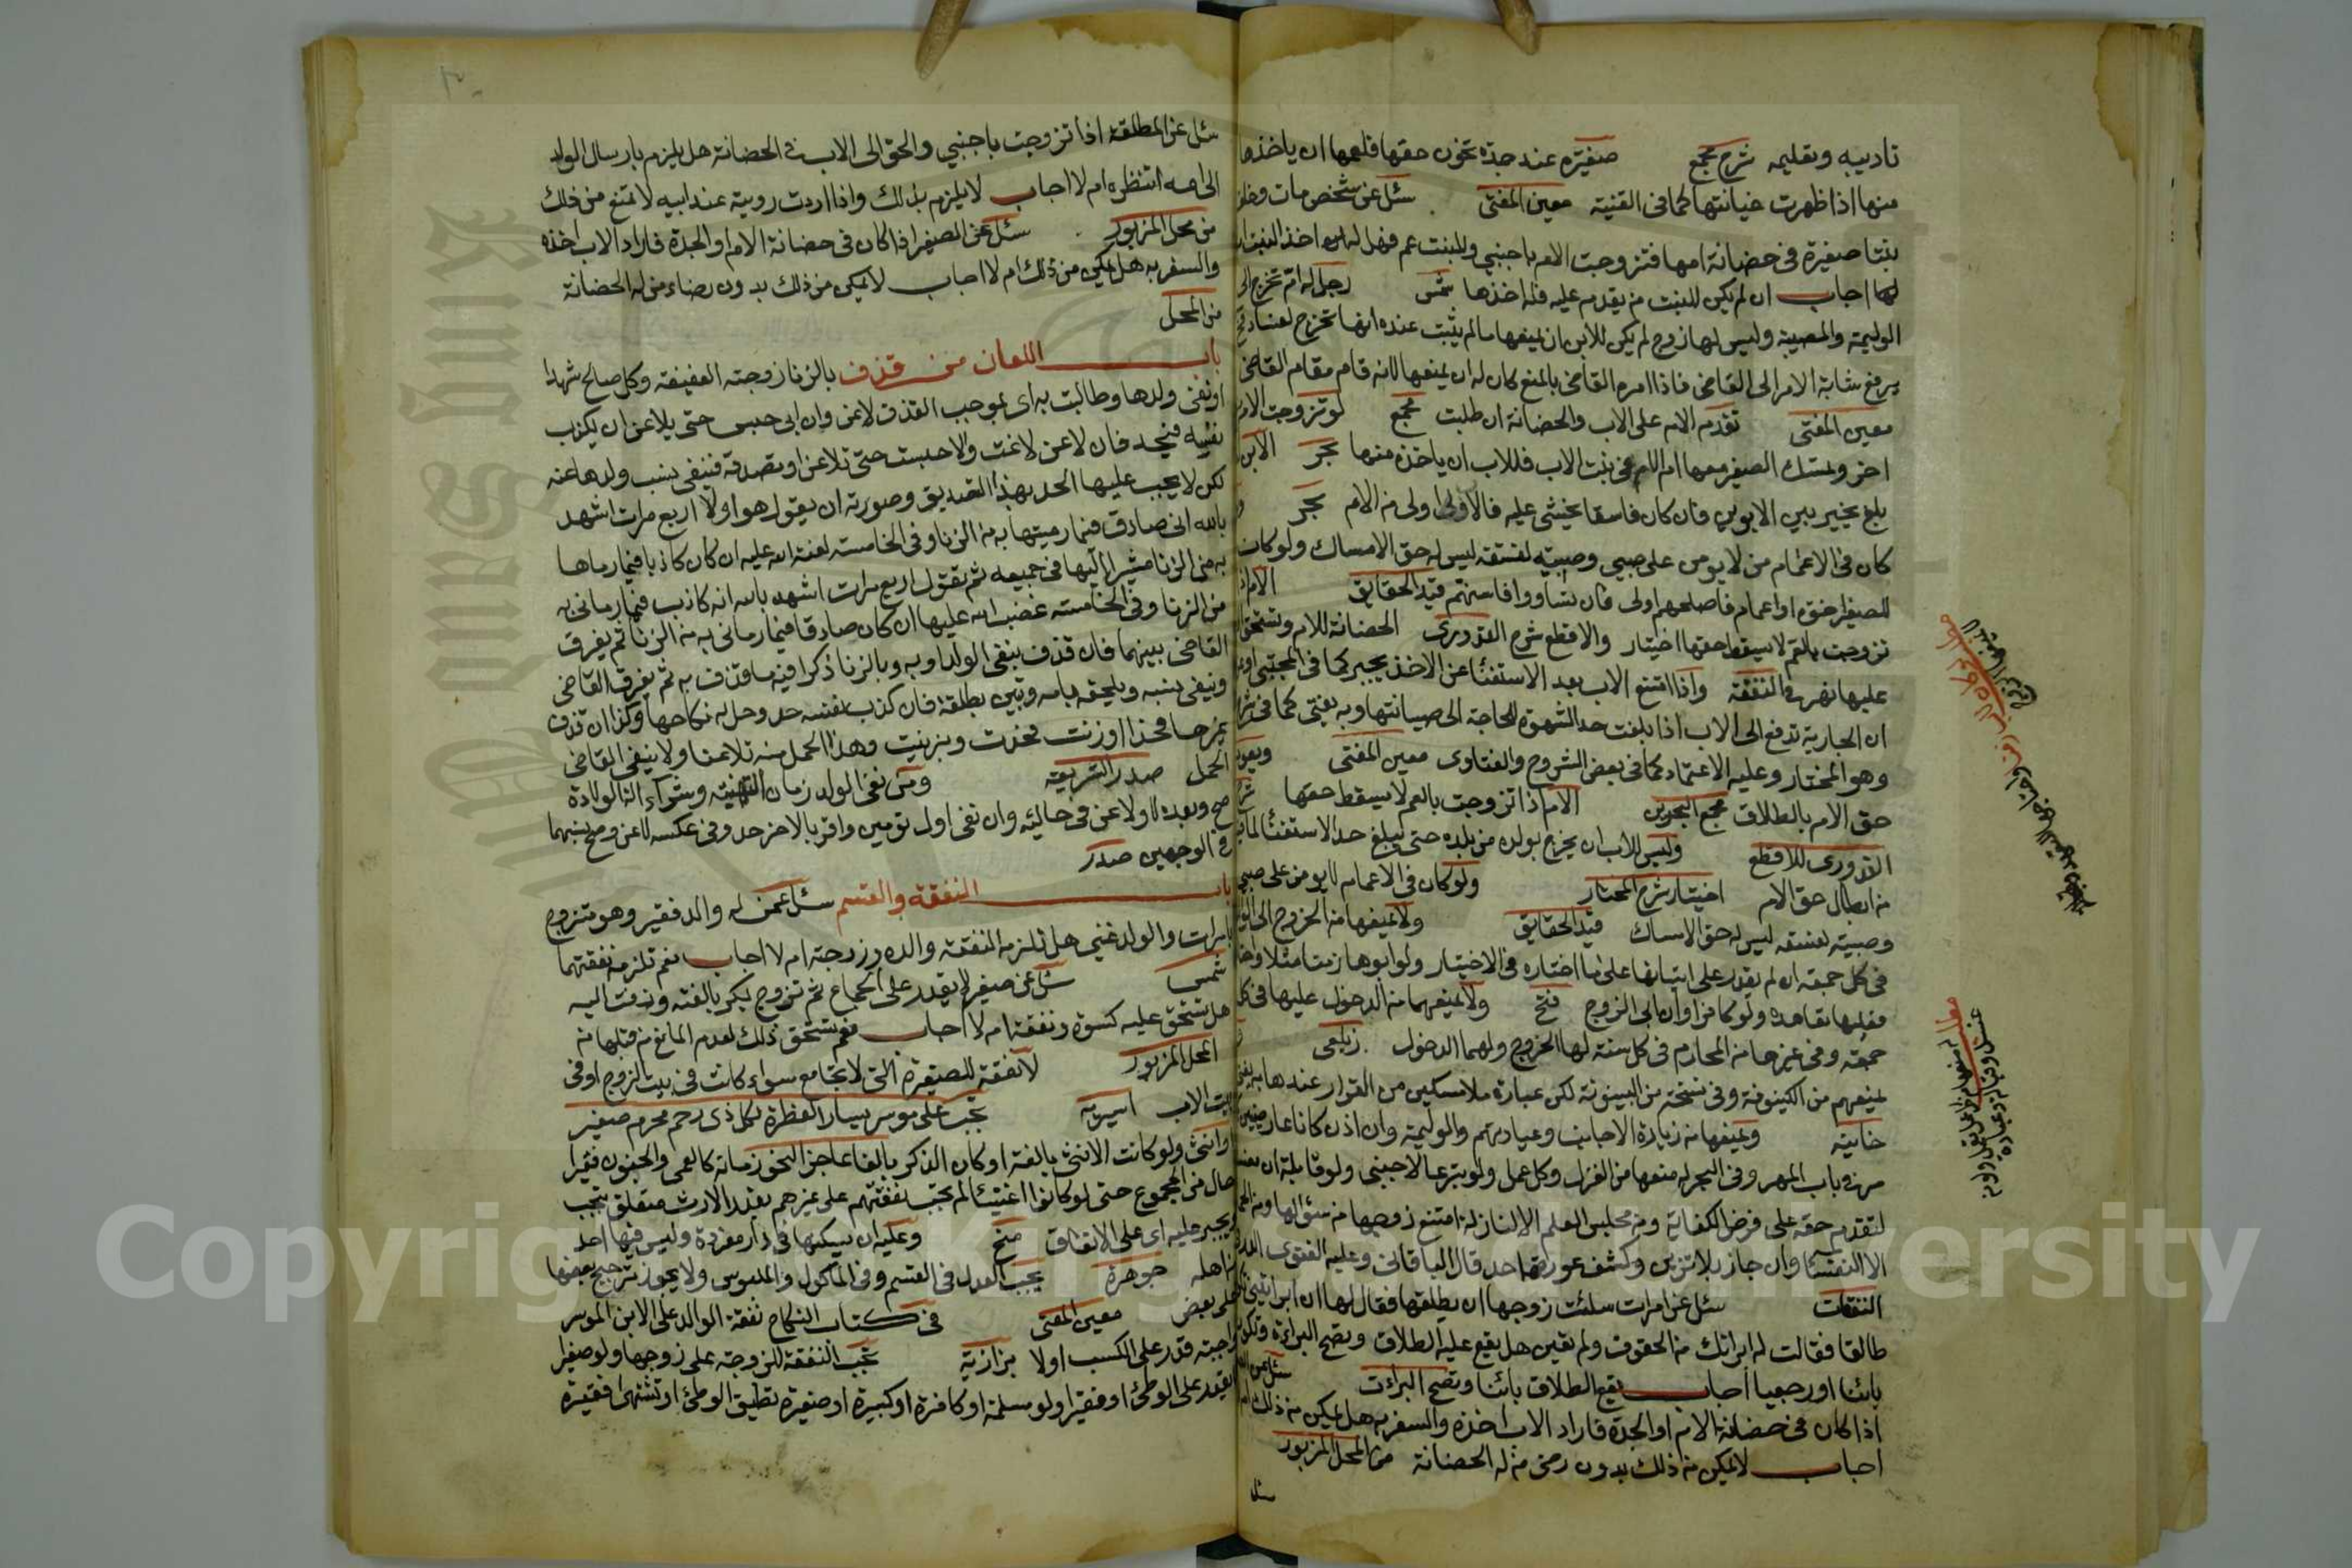 تاديبه وتعليمه شرح مجمع صغيرة عند جدة تخون حقها فلعمها ان ياخذها
منها اذا ظهرت خيانتها كما في القنية معين المفتي سئل عن شخص مات وخلف
بنتا صغيرة في حضانة امها فتزوجت الام باجنبي وللبنت عم فهل له اخذ البنت
لها اجاب ان لم يكن للبنت من يقدم عليه فله اخذها شمس رجل له ام تخرج الى
الوليمة والمصيبة وليس لها زوج لم يكن للابن ان يمنعها ما لم يثبت عنده انها تخرج لفساد
يرفع شانه الامر الى القاضي فاذا امره القاضي بالمنع كان له ان يمنعها لانه قام مقام القاضي
معين المفتي تقدم الام على الاب والحضانة ان طلبت مجمع لو تزوجت الام
اخر وتمسك الصغير معها ام الام في بيت الاب فللاب ان ياخذه منها بحر الابن
بلغ يخير بين الابوين وان كان فاسقا يخشى عليه فالاب اولى من الام بحر
كان في الاعمام من لا يومن على صبي وصبية لفسقه ليس له حق الامساك ولو كان
للصغير اخوة او اعمام فاصلحهم اولى فان تساووا فاسنهم قيد الحقايق الام اذا
تزوجت بالعم لا يسقط حقها اختيار والاقطع شرح القدوري الحضانة للام وتستحق
عليها نهر في النفقة واذا امتنع الاب بعد الاستغنا عن الاخذ يجبر كما في المجتبى
ان الجارية تدفع الى الاب اذا بلغت حد الشهوة للحاجة الى صيانتها وبه يفتى كما في
وهو المختار وعليه الاعتماد كما في بعض الشروح والفتاوى معين المفتي ويعود
حق الام بالطلاق مجمع البحرين الام اذا تزوجت بالعم لا يسقط حقها
القدوري للاقطع وليس للاب ان يخرج بولده من بلده حتى يبلغ حد الاستغنا لما فيه
من ابطال حق الام اختيار شرح المختار ولو كان في الاعمام لا يومن على صبي
وصبية لفسقه ليس له حق الامساك قيد الحقايق ولا يمنعها من الخروج الى
في كل جمعة ان لم يقدر على اتيانها على ما اختاره في الاختيار ولو ابوها زمنا مثلا
فعليها تعاهده ولو كافرا وان ابى الزوج فتح ولا يمنعهما من الدخول عليها في كل
جمعة وفي غيرها من المحارم في كل سنة لها الخروج ولهما الدخول زيلعي
يمنعهم من الكينونة وفي نسخة من البيتوتة لكن عبارة ملا مسكين من القرار عندها به يفتى
خانية ويمنعها من زيارة الاجانب وعيادتهم والوليمة وان اذن كانا عاصيين
مر في باب المهر وفي البحر له منعها من الغزل وكل عمل ولو تبرعا لاجنبي ولو قابلة
لتقدم حقه على فرض الكفاية ومن مجلس العلم الا لنازلة امتنع زوجها من سؤالها
الا النفسا وان جاز بلا تزين وكشف عورة احد قال الباقاني وعليه الفتوى
النفقات سئل عن امرات سئلت زوجها ان يطلقها فقال لها ان ابراتيني
طالقا فقالت له ابراتك من الحقوق ولم تعين هل يقع عليه الطلاق وتصح البراءة
بائنا او رجعيا اجاب يقع الطلاق بائنا وتصح البراءت
اذا كان في حضانة الام او الجدة فاراد الاب اخذه والسفر به هل يمكن من ذلك
اجاب لا يمكن من ذلك بدون رضى من له الحضانة من المحل المزبور
سئل
سئل عن المطلقة اذا تزوجت باجنبي والحق الى الاب في الحضانة هل يلزم بارسال الولد
الى امه لتنظره ام لا اجاب لا يلزم بذلك واذا اردت روية عند ابيه لا تمنع من ذلك
من محل المزبور سئل عن الصغير اذا كان في حضانة الام او الجدة فاراد الاب اخذه
والسفر به هل يمكن من ذلك ام لا اجاب لا يمكن من ذلك بدون رضاء من له الحضانة
من المحل
باب اللعان من قذف بالزنا زوجته العفيفة وكل صالح شهدا
او نفى ولدها وطالبت به اى بموجب القذف لاعن وان ابى حبس حتى يلاعن او يكذب
نفسه فيحد فان لاعن لاعنت والا حبست حتى تلاعن او تصدقه فينفى نسب ولدها عنه
لكن لا يجب عليها الحد بهذا التصديق وصورته ان يقول هو اولا اربع مرات اشهد
بالله اني صادق فيما رميتها به من الزنا وفي الخامسة لعنة الله عليه ان كان كاذبا فيما رماها
به من الزنا مشيرا اليها في جميعه ثم تقول اربع مرات اشهد بالله انه كاذب فيما رماني به
من الزنا وفي الخامسة غضب الله عليها ان كان صادقا فيما رماني به من الزنا ثم يفرق
القاضي بينهما فان قذف بنفي الولد او به وبالزنا ذكرا فيه ما قذف به ثم يفرق القاضي
وينفى نسبه ويلحقه بامه وتبين بطلقة فان كذب نفسه حد وحل له نكاحها وكذا ان قذف
غيرها فحد او زنت فحدت وبزنيت وهذا الحمل منه تلاعنا ولا ينفي القاضي
الحمل صدر الشريعة ومن نفى الولد زمان التهنية وشراء الة الولادة
صح وبعده لا ولاعن في حاليه وان نفى اول تومين واقر بالاخر حد وفي عكسه لاعن وصح نسبهما
في الوجهين صدر
باب النفقة والقسم سئل عمن له والد فقير وهو متزوج
بامرات والولد غني هل تلزمه النفقة والده وزوجته ام لا اجاب نعم تلزمه نفقتهما
شمس سئل عن صغير لا يقدر على الجماع ثم تزوج بكر بالغة وزفت اليه
هل تستحق عليه كسوة ونفقة ام لا اجاب نعم تستحق ذلك لعدم المانع من قبلها من
المحل المزبور لا نفقة للصغيرة التي لا تجامع سواء كانت في بيت الزوج او في
بيت الاب تجب على موسر يسار الفطرة لكل ذي رحم محرم صغير
وانثى ولو كانت الانثى بالغة او كان الذكر بالغا عاجزا لنحو زمانة كالعمى والجنون فقيرا
حال من المجموع حتى لو كانوا اغنيا لم تجب نفقتهم على غيرهم بقدر الارث متعلق بتجب
ويجبر عليه اى على الانفاق منح وعليه ان يسكنها في دار مفردة وليس فيها احد
من اهله جوهرة يجب العدل في القسم وفي الماكول والملبوس ولا يجوز ترجيح بعضها
على بعض معين المفتي في كتاب النكاح نفقة الوالد على الابن الموسر
واجبة قدر على الكسب اولا بزازية تجب النفقة للزوجة على زوجها ولو صغيرا
لا يقدر على الوطئ او فقيرا ولو مسلمة او كافرة او كبيرة او صغيرة تطيق الوطئ او تشتهى فقيرة
Copyright © King Saud University